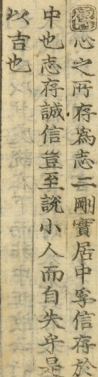 心之所存為志二剛實居中孚信存於
中也志存誠信豈至說小人而自失乎是
以吉也